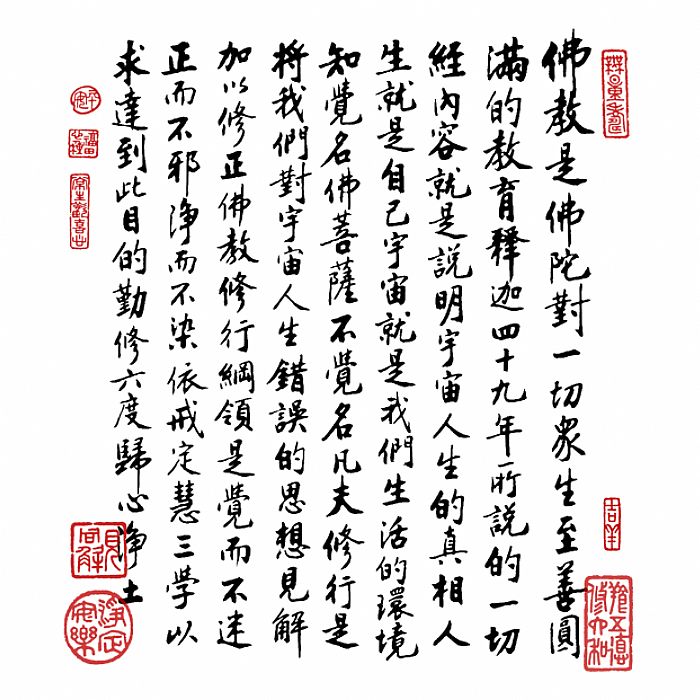 佛教是佛陀對一切眾生至善圓
滿的教育釋迦四十九年所說的一切
經內容就是說明宇宙人生的真相人
生就是自己宇宙就是我們生活的環境
知覺名佛菩薩不覺名凡夫修行是
將我們對宇宙人生錯誤的思想見解
加以修正佛教修行綱領是覺而不迷
正而不邪淨而不染依戒定慧三學以
求達到此目的勤修六度歸心淨土
吉羊
淨定安樂